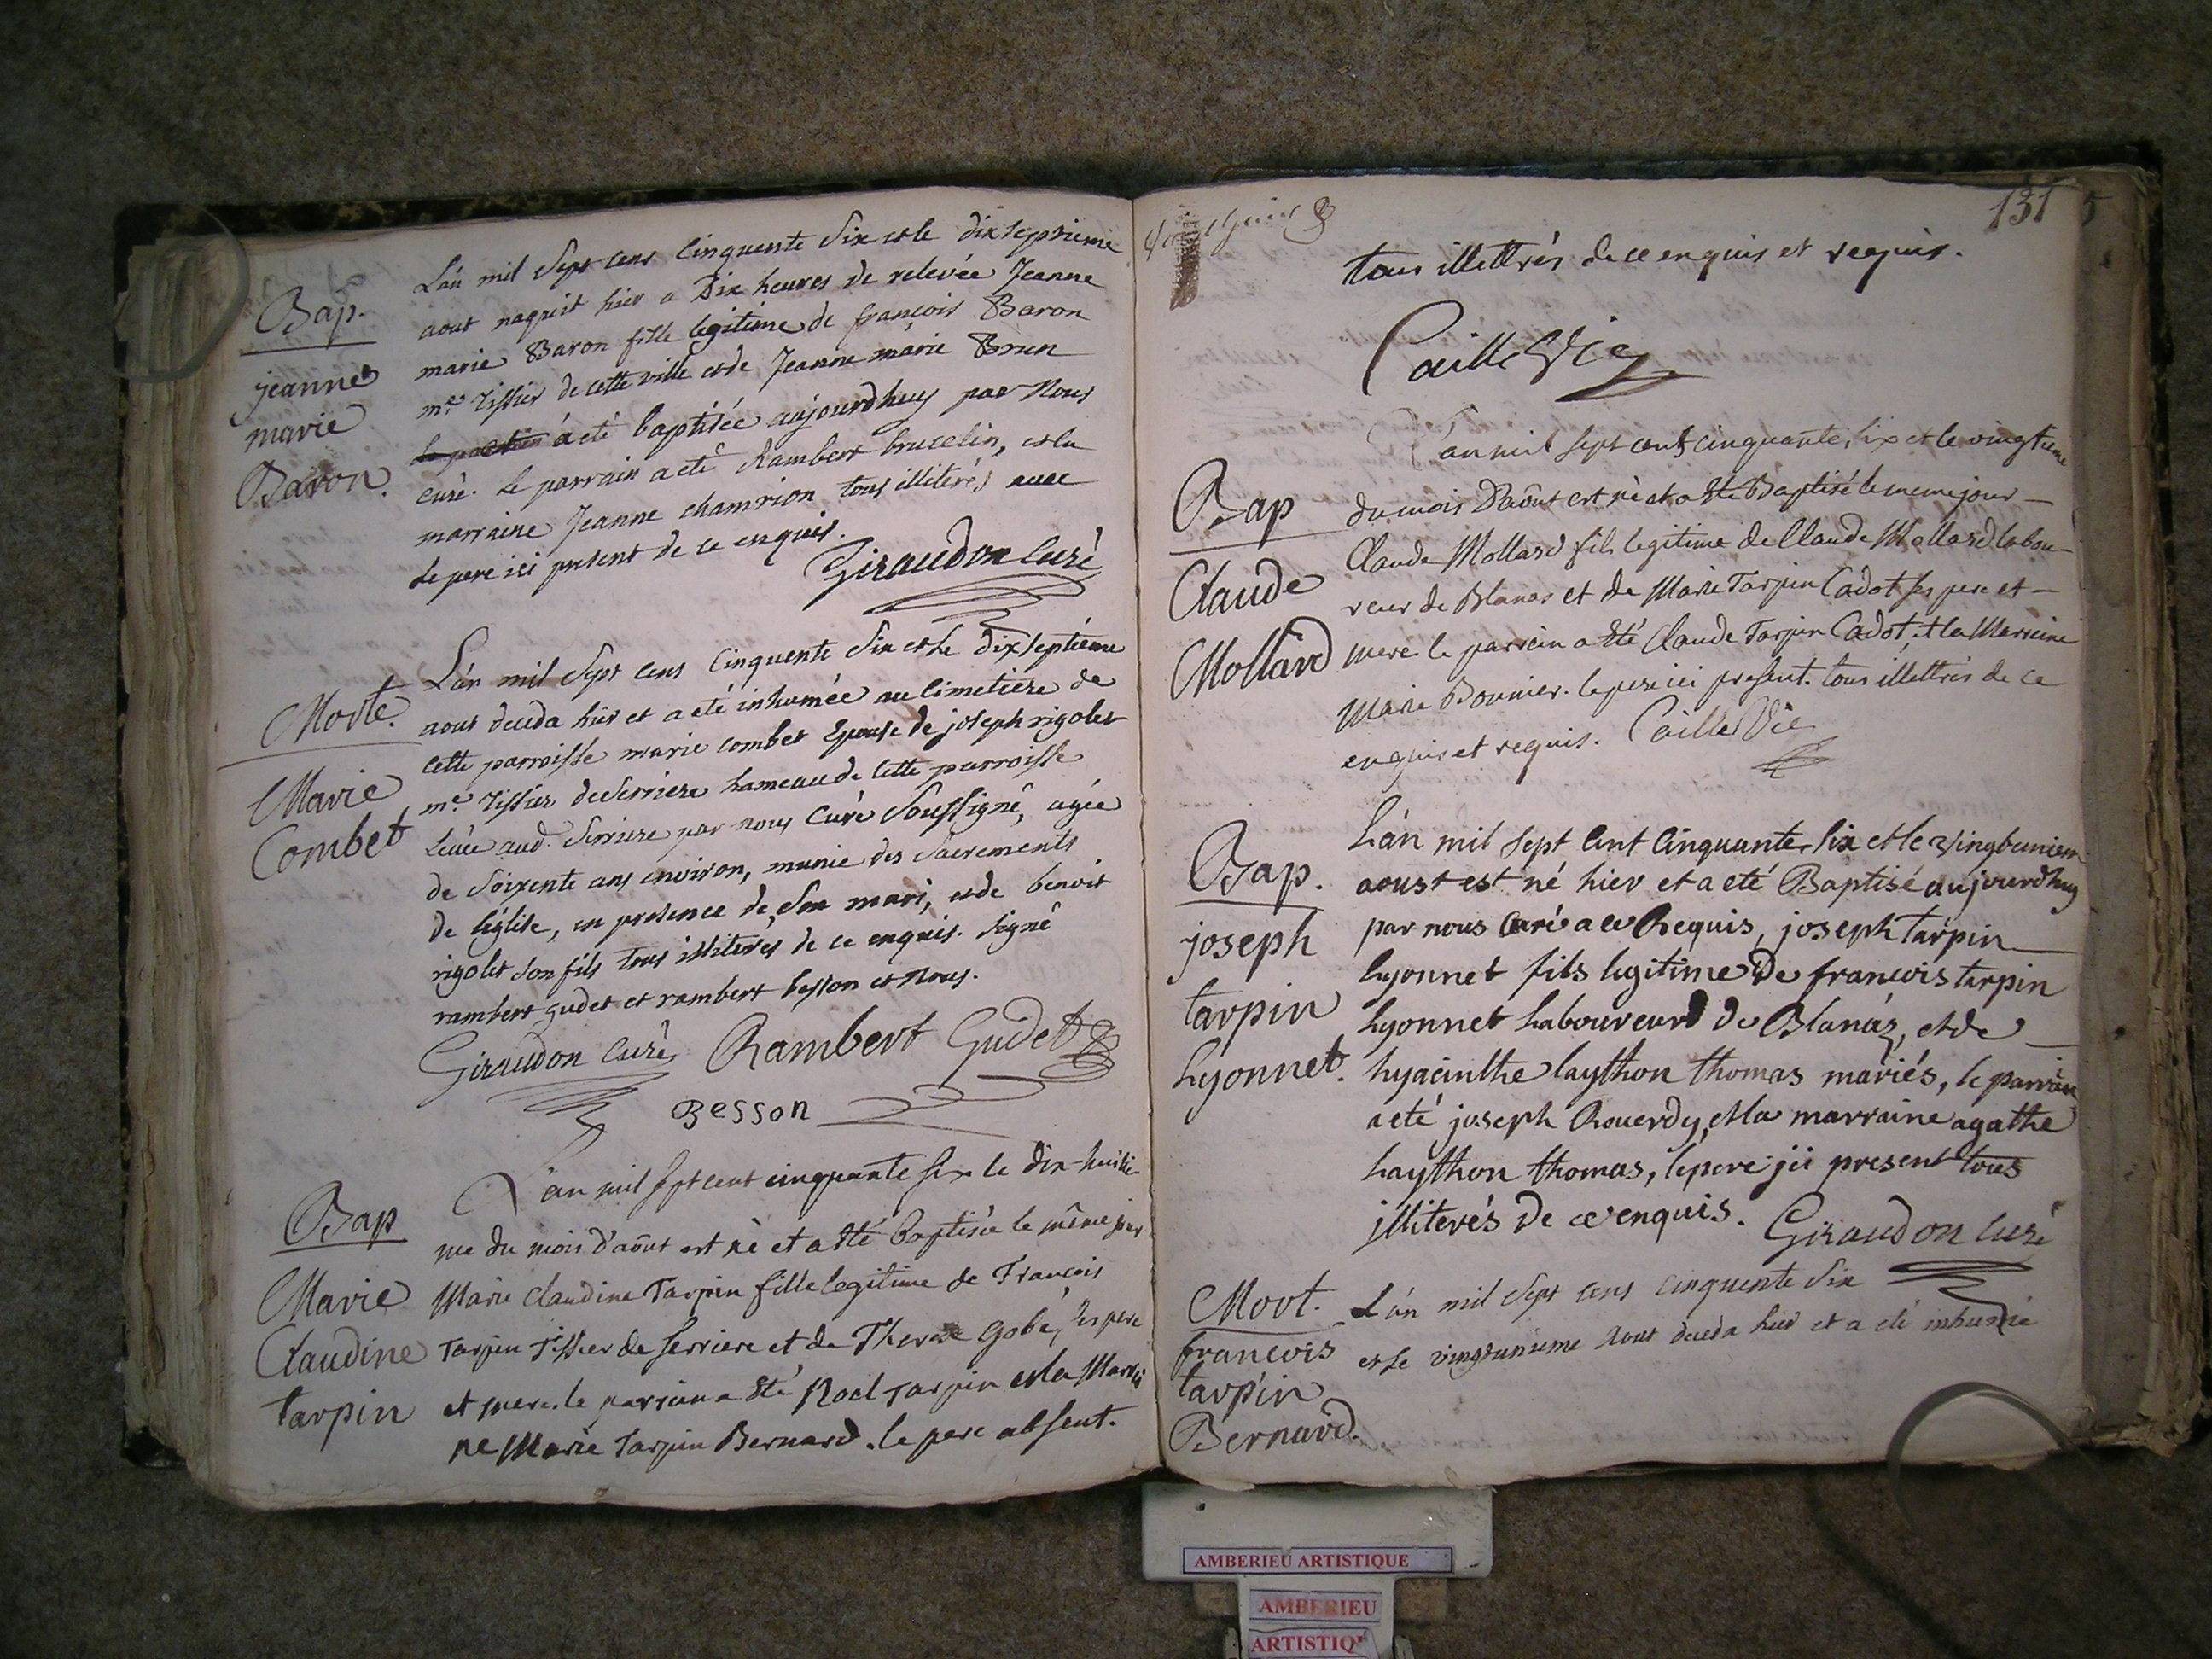 Bap.
jeanne
marie
Baron.
L'an mil Sept cens Cinquente Six et le dix septieme
aout naquit hier a Dix heures de relevée Jeanne
marie Baron fille legitime de françois Baron
me Tissier de cette ville et de Jeanne marie Brun
a eté baptisée aujourdhuy par Nous
curé. Le parrain a eté Rambert brucelin, et la
marraine Jeanne chamrion tous illiterés avec
le pere ici present de ce enquis.
Giraudon Curé
Morte.
Marie
Combet
L'an mil Sept cens Cinquente Six et le dixseptieme
aout deceda hier et a eté inhumée au Cimetiere de
cette parroisse marie combet Epouse de joseph rigolet
me Tissier de Serriere hameau de cette parroisse
Levée aud. Serriere par nous Curé Soussigné, agée
de Soixente ans environ, munie des Sacrements
de l'église, en presence de Son mari, et de benoit
rigolet son fils tous illiterés de ce enquis. Signé
rambert gudet et rambert besson et nous.
Giraudon Curé Rambert Gudet
Besson
Bap
Marie
Claudine
tarpin
L'an mil sept cent cinquante six le dix-huitie-
me du mois d'aôut est né et a Eté Baptisée le même jour
Marie Claudine Tarpin fille legitime de François
Tarpin Tissier de Serriere et de Therese Gobé, ses pere
et mere. le parrain a Eté Noel Tarpin et la Marrai
ne Marie Tarpin Bernard. le pere absent.
131
5
tous illettrés de ce enquis et requis.
Caille Vic
Bap
Claude
Mollard
L'an mil sept cent cinquante, six et le vingtieme
du mois D'aôut est né et a Eté Baptisé le meme jour
Claude Mollard fils legitime de Claude Mollard labou-
reur de Blanas et de Marie Tarpin Cadot ses pere et
mere le parrain a Eté Claude Tarpin Cadot, et la Marraine
Marie Bonnier. le pere ici present. tous illettrés de ce
enquis et requis. Caille Vic
Bap.
joseph
tarpin
Lyonnet.
L'an mil sept Cent Cinquante, Six et le vingtuniem
aoust est né hier et a eté Baptisé aujourdhuy
par nous Curé a ce Requis, joseph tarpin
Lyonnet fils legitime De francois tarpin
Lyonnet Laboureur De Blanaz, et de
hyacinthe Laython thomas mariés, le parrain
a eté joseph Rouerdy, et la marraine agathe
Laython thomas, le pere jci present tous
jlliterés De ce enquis. Giraudon Curé
Mort.
francois
tarpin
Bernard.
L'an mil Sept cens Cinquente Six
et le vingtunieme Aout deceda hier et a eté inhumé
AMBERIEU ARTISTIQUE
AMBERIEU
ARTISTIQ